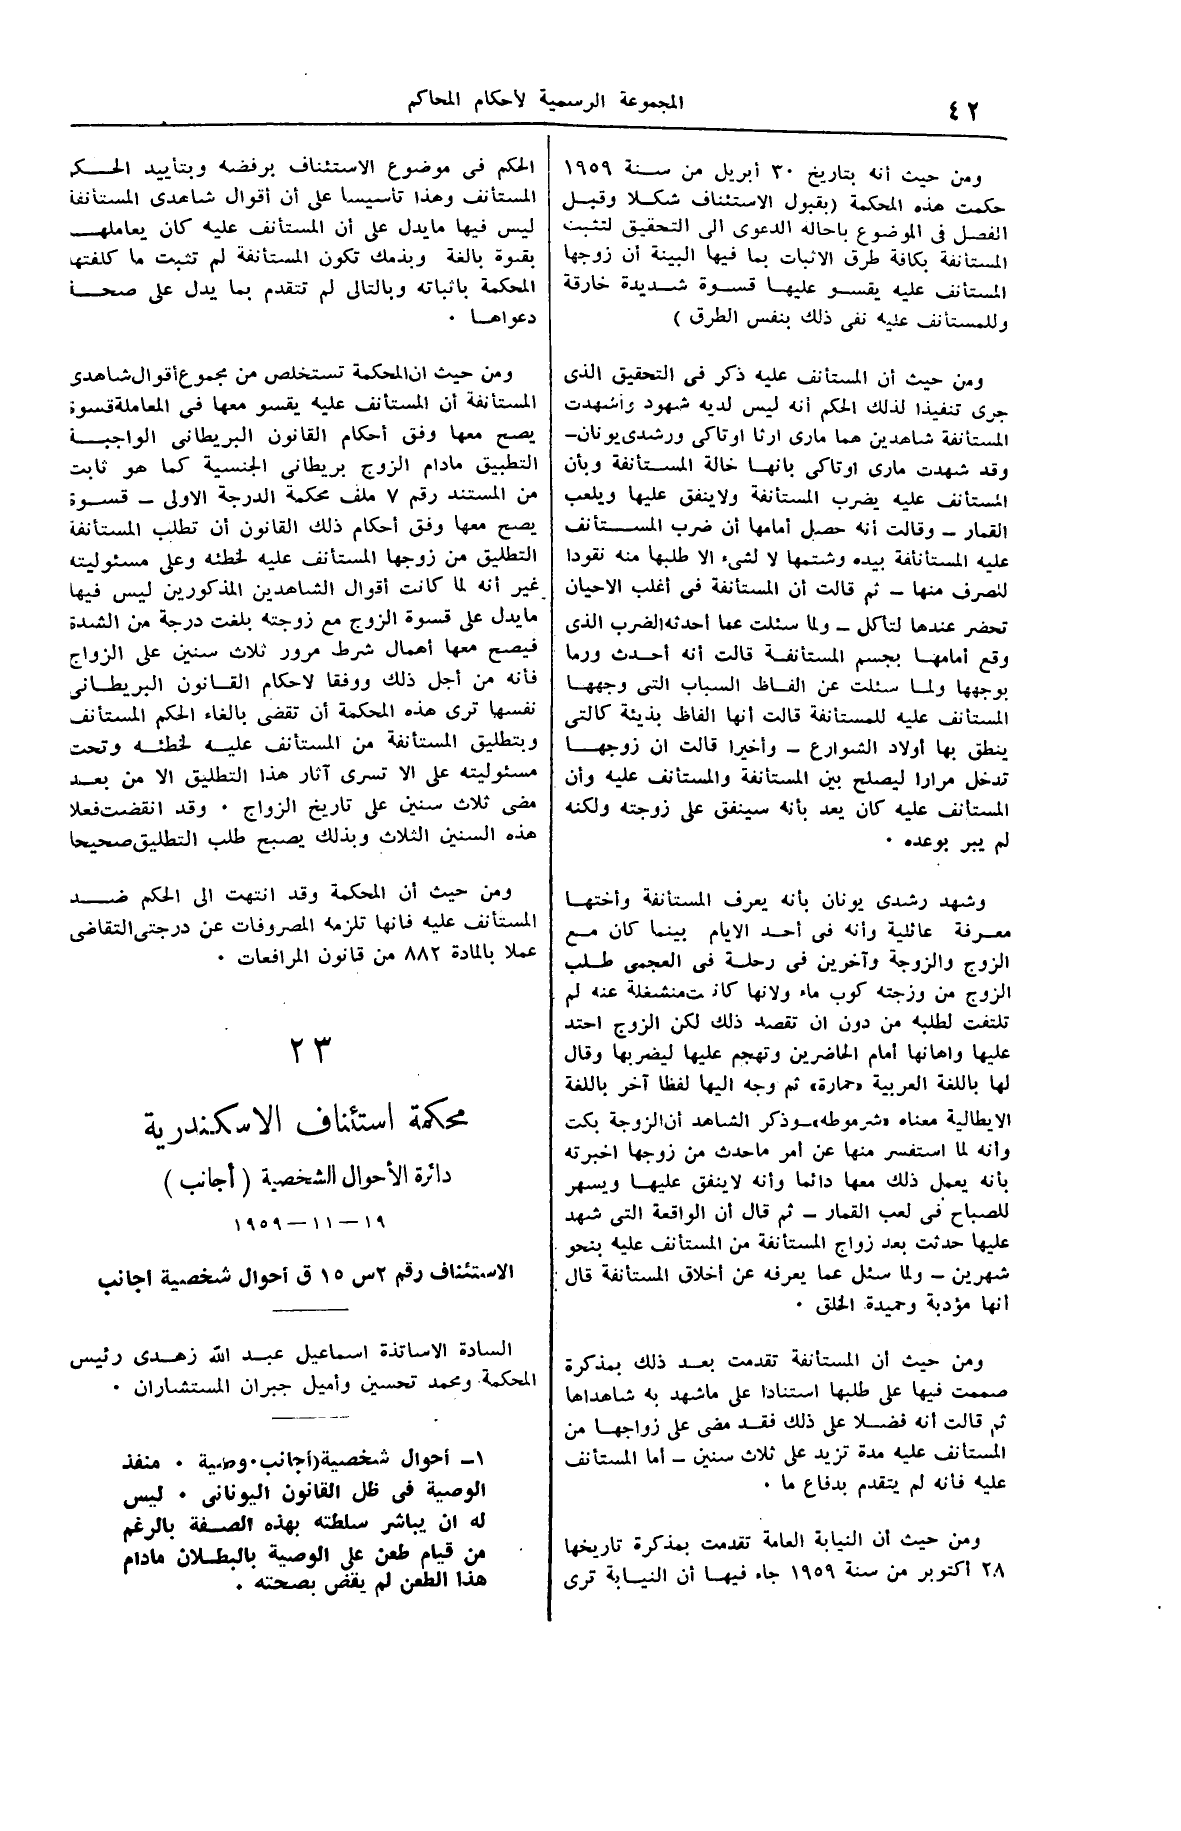 ٤٢
المجموعة الرسمية لأحكام المحاكم
ومن حيث أنه بتاريخ ٣٠ أبريل من سـنة ١٩٥٩
حكمت هذه المحكمة (بقبول الاستئناف شكلا وقبـل
الفصل فى الموضوع باحاله الدعوى الى التحقيق لتثبت
المستأنفة بكافة طرق الاثبات بما فيها البينة أن زوجها
المستأنف عليه يقسو عليها قسوة شديدة خارقة
وللمستأنف عليه نفى ذلك بنفس الطرق )
ومن حيث أن المستأنف عليه ذكر فى التحقيق الذى
جرى تنفيذا لذلك الحكم أنه ليس لديه شهود وأشهدت
المستأنفة شاهدين هما مارى ارثا اوتاكى ورشدى يونان–
وقد شهدت مارى اوتاكى بانها خالة المستأنفة وبأن
المستأنف عليه يضرب المستأنفة ولاينفق عليها ويلعب
القمار – وقالت أنه حصل أمامها أن ضرب المستأنف
عليه المستأنافة بيده وشتمها لا لشىء الا طلبها منه نقودا
لتصرف منها – ثم قالت أن المستأنفة فى أغلب الاحيان
تحضر عندها لتأكل – ولما سئلت عما أحدثه الضرب الذى
وقع أمامها بجسم المستأنفة قالت أنه أحدث ورما
بوجهها ولما سئلت عن الفاظ السباب التى وجهها
المستأنف عليه للمستأنفة قالت أنها الفاظ بذيئة كالتى
ينطق بها أولاد الشوارع – وأخيرا قالت ان زوجها
تدخل مرارا ليصلح بين المستأنفة والمستأنف عليه وأن
المستأنف عليه كان يعد بأنه سينفق على زوجته ولكنه
لم يبر بوعده ٠
وشهد رشدى يونان بأنه يعرف المستأنفة وأختها
معرفة عائلية وأنه فى أحد الايام بينما كان مع
الزوج والزوجة وآخرين فى رحلة فى العجمى طلب
الزوج من وزجته كوب ماء ولانها كانت منشغلة عنه لم
تلتفت لطلبه من دون ان تقصد ذلك لكن الزوج احتد
عليها واهانها أمام الحاضرين وتهجم عليها ليضربها وقال
لها باللغة العربية «حمارة» ثم وجه اليها لفظا آخر باللغة
الايطالية معناه «شرموطه»–وذكر الشاهد أن الزوجة بكت
وأنه لما استفسر منها عن أمر ماحدث من زوجها اخبرته
بأنه يعمل ذلك معها دائما وأنه لاينفق عليها ويسهر
للصباح فى لعب القمار – ثم قال أن الواقعة التى شهد
عليها حدثت بعد زواج المستأنفة من المستأنف عليه بنحو
شهرين – ولما سئل عما يعرفه عن أخلاق المستأنفة قال
أنها مؤدبة وحميدة الخلق ٠
ومن حيث أن المستأنفة تقدمت بعد ذلك بمذكرة
صممت فيها على طلبها استنادا على ماشهد به شاهداها
ثم قالت أنه فضلا على ذلك فقد مضى على زواجها من
المستأنف عليه مدة تزيد على ثلاث سنين – أما المستأنف
عليه فأنه لم يتقدم بدفاع ما ٠
ومن حيث أن النيابة العامة تقدمت بمذكرة تاريخها
٢٨ أكتوبر من سنة ١٩٥٩ جاء فيها أن النيابة ترى
الحكم فى موضوع الاستئناف برفضه وبتأييد الحكم
المستأنف وهذا تأسيسا على أن أقوال شاهدى المستأنفة
ليس فيها مايدل على أن المستأنف عليه كان يعاملها
بقسوة بالغة وبذمك تكون المستأنفة لم تثبت ما كلفتها
المحكمة باثباته وبالتالى لم تتقدم بما يدل على صحة
دعواها ٠
ومن حيث ان المحكمة تستخلص من مجموع أقوال شاهدى
المستأنفة أن المستأنف عليه يقسو معها فى المعاملة قسوة
يصح معها وفق أحكام القانون البريطانى الواجبة
التطبيق مادام الزوج بريطانى الجنسية كما هو ثابت
من المستند رقم ٧ ملف محكمة الدرجة الاولى – قسوة
يصح معها وفق أحكام ذلك القانون أن تطلب المستأنفة
التطليق من زوجها المستأنف عليه لخطئه وعلى مسئوليته
غير أنه لما كانت أقوال الشاهدين المذكورين ليس فيها
مايدل على قسوة الزوج مع زوجته بلغت درجة من الشدة
فيصح معها أهمال شرط مرور ثلاث سنين على الزواج
فأنه من أجل ذلك ووفقا لاحكام القانون البريطانى
نفسها ترى هذه المحكمة أن تقضى بالغاء الحكم المستأنف
وبتطليق المستأنفة من المستأنف عليه لخطئه وتحت
مسئوليته على الا تسرى آثار هذا التطليق الا من بعد
مضى ثلاث سنين على تاريخ الزواج ٠ وقد انقضت فعلا
هذه السنين الثلاث وبذلك يصبح طلب التطليق صحيحا
ومن حيث أن المحكمة وقد انتهت الى الحكم ضد
المستأنف عليه فانها تلزمه المصروفات عن درجتى التقاضى
عملا بالمادة ٨٨٢ من قانون المرافعات ٠
٢٣
محكمة استئناف الاسكندرية
دائرة الأحوال الشخصية ( أجانب )
١٩–١١–١٩٥٩
الاستئناف رقم ٢س ١٥ ق أحوال شخصية اجانب
السادة الاساتذة اسماعيل عبد الله زهدى رئيس
المحكمة ومحمد تحسين وأميل جبران المستشاران ٠
١– أحوال شخصية(أجانب٠وصية ٠ منفذ
الوصية فى ظل القانون اليونانى ٠ ليس
له ان يباشر سلطته بهذه الصفة بالرغم
من قيام طعن على الوصية بالبطلان مادام
هذا الطعن لم يقض بصحته ٠